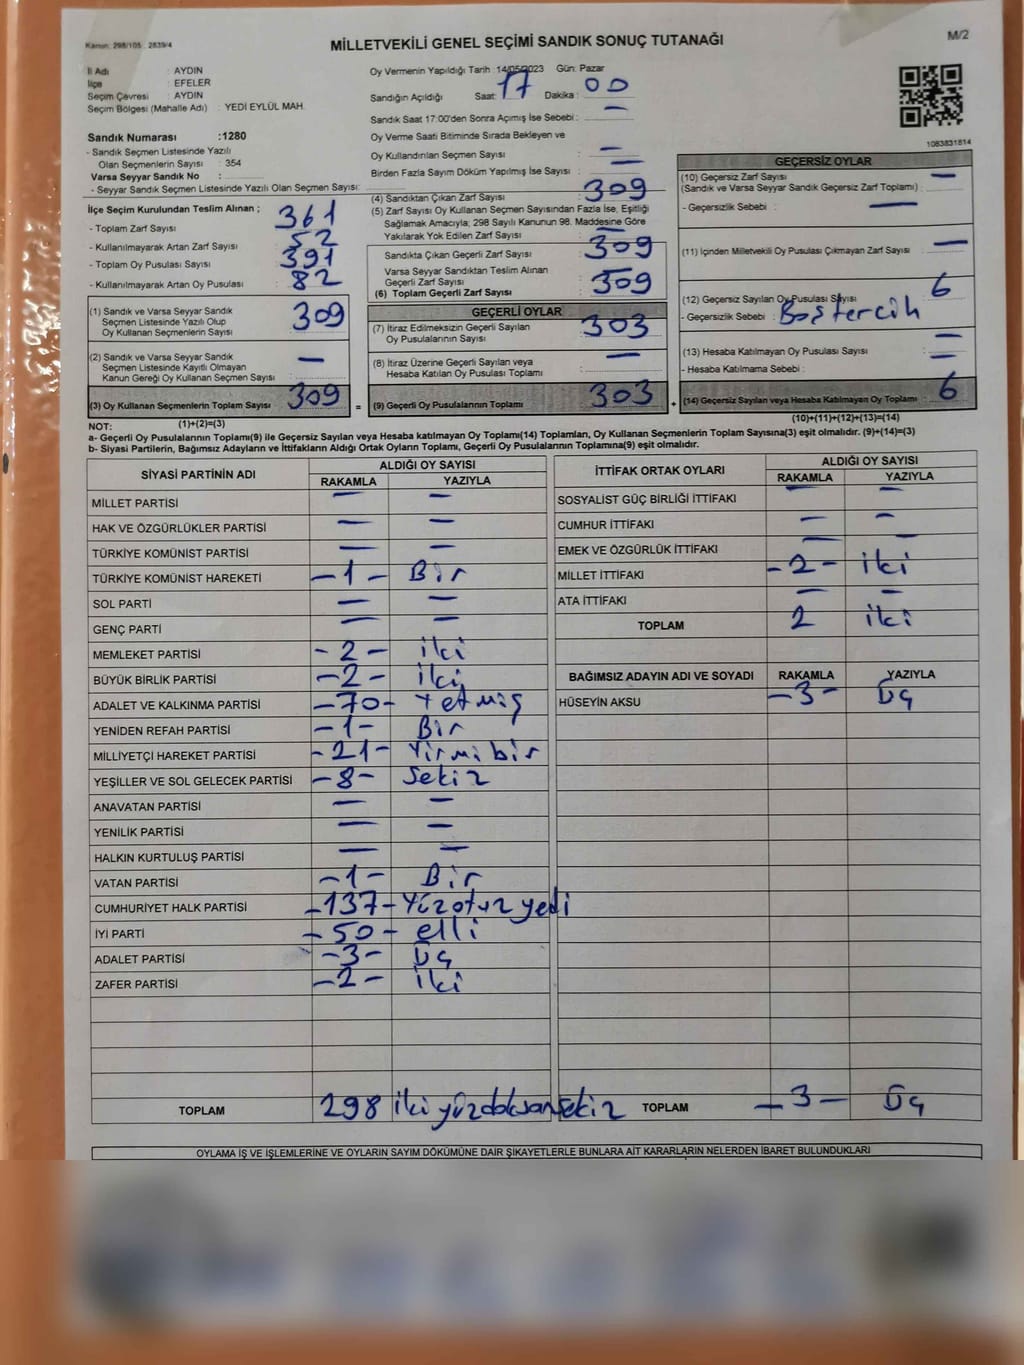 Kanun: 298/105 2839/4
MİLLETVEKİLİ GENEL SEÇİMİ SANDIK SONUÇ TUTANAĞI
M/2
İl Adı : AYDIN
İlçe : EFELER
Seçim Çevresi : AYDIN
Seçim Bölgesi (Mahalle Adı) : YEDİ EYLÜL MAH.
Sandık Numarası :1280
- Sandık Seçmen Listesinde Yazılı
Olan Seçmenlerin Sayısı : 354
Varsa Seyyar Sandık No :
- Seyyar Sandık Seçmen Listesinde Yazılı Olan Seçmen Sayısı:
Oy Vermenin Yapıldığı Tarih :14/05/2023 Gün: Pazar
Sandığın Açıldığı Saat: 17 Dakika : 00
Sandık Saat 17:00'den Sonra Açımış İse Sebebi : —
Oy Verme Saati Bitiminde Sırada Bekleyen ve
Oy Kullandırılan Seçmen Sayısı : —
Birden Fazla Sayım Döküm Yapılmış İse Sayısı : —
1083831814
İlçe Seçim Kurulundan Teslim Alınan ;
- Toplam Zarf Sayısı : 361
- Kullanılmayarak Artan Zarf Sayısı : 52
- Toplam Oy Pusulası Sayısı : 391
- Kullanılmayarak Artan Oy Pusulası : 82
(1) Sandık ve Varsa Seyyar Sandık
Seçmen Listesinde Yazılı Olup
Oy Kullanan Seçmenlerin Sayısı : 309
(2) Sandık ve Varsa Seyyar Sandık
Seçmen Listesinde Kayıtlı Olmayan
Kanun Gereği Oy Kullanan Seçmen Sayısı : —
(3) Oy Kullanan Seçmenlerin Toplam Sayısı : 309
(4) Sandıktan Çıkan Zarf Sayısı : 309
(5) Zarf Sayısı Oy Kullanan Seçmen Sayısından Fazla İse, Eşitliği
Sağlamak Amacıyla; 298 Sayılı Kanunun 98. Maddesine Göre
Yakılarak Yok Edilen Zarf Sayısı : —
Sandıkta Çıkan Geçerli Zarf Sayısı : 309
Varsa Seyyar Sandıktan Teslim Alınan
Geçerli Zarf Sayısı : —
(6) Toplam Geçerli Zarf Sayısı : 309
GEÇERLİ OYLAR
(7) İtiraz Edilmeksizin Geçerli Sayılan
Oy Pusulalarının Sayısı : 303
(8) İtiraz Üzerine Geçerli Sayılan veya
Hesaba Katılan Oy Pusulası Toplamı : —
= (9) Geçerli Oy Pusulalarının Toplamı : 303
GEÇERSİZ OYLAR
(10) Geçersiz Zarf Sayısı
(Sandık ve Varsa Seyyar Sandık Geçersiz Zarf Toplamı) : —
- Geçersizlik Sebebi : —
(11) İçinden Milletvekili Oy Pusulası Çıkmayan Zarf Sayısı : —
(12) Geçersiz Sayılan Oy Pusulası Sayısı : 6
- Geçersizlik Sebebi : Boştercih
(13) Hesaba Katılmayan Oy Pusulası Sayısı : —
- Hesaba Katılmama Sebebi : —
+ (14) Geçersiz Sayılan veya Hesaba Katılmayan Oy Toplamı : 6
NOT: (1)+(2)=(3) (10)+(11)+(12)+(13)=(14)
a- Geçerli Oy Pusulalarının Toplamı(9) ile Geçersiz Sayılan veya Hesaba katılmayan Oy Toplamı(14) Toplamları, Oy Kullanan Seçmenlerin Toplam Sayısına(3) eşit olmalıdır. (9)+(14)=(3)
b- Siyasi Partilerin, Bağımsız Adayların ve İttifakların Aldığı Ortak Oyların Toplamı, Geçerli Oy Pusulalarının Toplamına(9) eşit olmalıdır.
SİYASİ PARTİNİN ADI ALDIĞI OY SAYISI
RAKAMLA YAZIYLA
MİLLET PARTİSİ — —
HAK VE ÖZGÜRLÜKLER PARTİSİ — —
TÜRKİYE KOMÜNİST PARTİSİ — —
TÜRKİYE KOMÜNİST HAREKETİ -1- Bir
SOL PARTİ — —
GENÇ PARTİ — —
MEMLEKET PARTİSİ -2- iki
BÜYÜK BİRLİK PARTİSİ -2- iki
ADALET VE KALKINMA PARTİSİ -70- Yetmiş
YENİDEN REFAH PARTİSİ -1- Bir
MİLLİYETÇİ HAREKET PARTİSİ -21- Yirmibir
YEŞİLLER VE SOL GELECEK PARTİSİ -8- Sekiz
ANAVATAN PARTİSİ — —
YENİLİK PARTİSİ — —
HALKIN KURTULUŞ PARTİSİ — —
VATAN PARTİSİ -1- Bir
CUMHURİYET HALK PARTİSİ -137- Yüzotuzyedi
İYİ PARTİ -50- elli
ADALET PARTİSİ -3- Üç
ZAFER PARTİSİ -2- iki
TOPLAM 298 iki yüzdoksansekiz
İTTİFAK ORTAK OYLARI ALDIĞI OY SAYISI
RAKAMLA YAZIYLA
SOSYALİST GÜÇ BİRLİĞİ İTTİFAKI — —
CUMHUR İTTİFAKI — —
EMEK VE ÖZGÜRLÜK İTTİFAKI — —
MİLLET İTTİFAKI -2- iki
ATA İTTİFAKI — —
TOPLAM 2 iki
BAĞIMSIZ ADAYIN ADI VE SOYADI RAKAMLA YAZIYLA
HÜSEYİN AKSU -3- Üç
TOPLAM -3- Üç
OYLAMA İŞ VE İŞLEMLERİNE VE OYLARIN SAYIM DÖKÜMÜNE DAİR ŞİKAYETLERLE BUNLARA AİT KARARLARIN NELERDEN İBARET BULUNDUKLARI